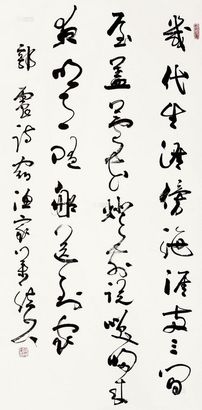 幾代生涯傍海涯两三間
屋蓋芦花燈前说笑归来
夜明月随船送到家
郭震诗宿渔家